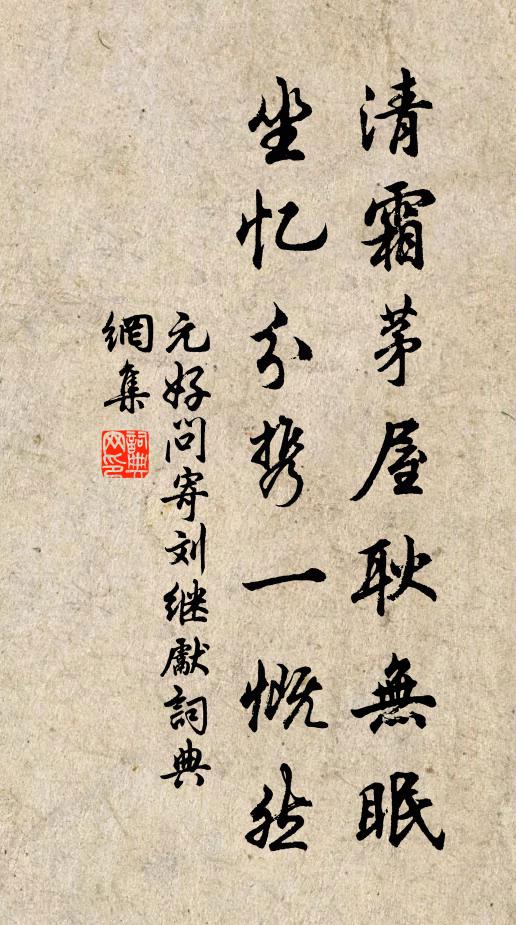 清霜茅屋耿無眠
坐忆分携一慨然
元好问寄刘继獻詞典
網集
詞典
网印